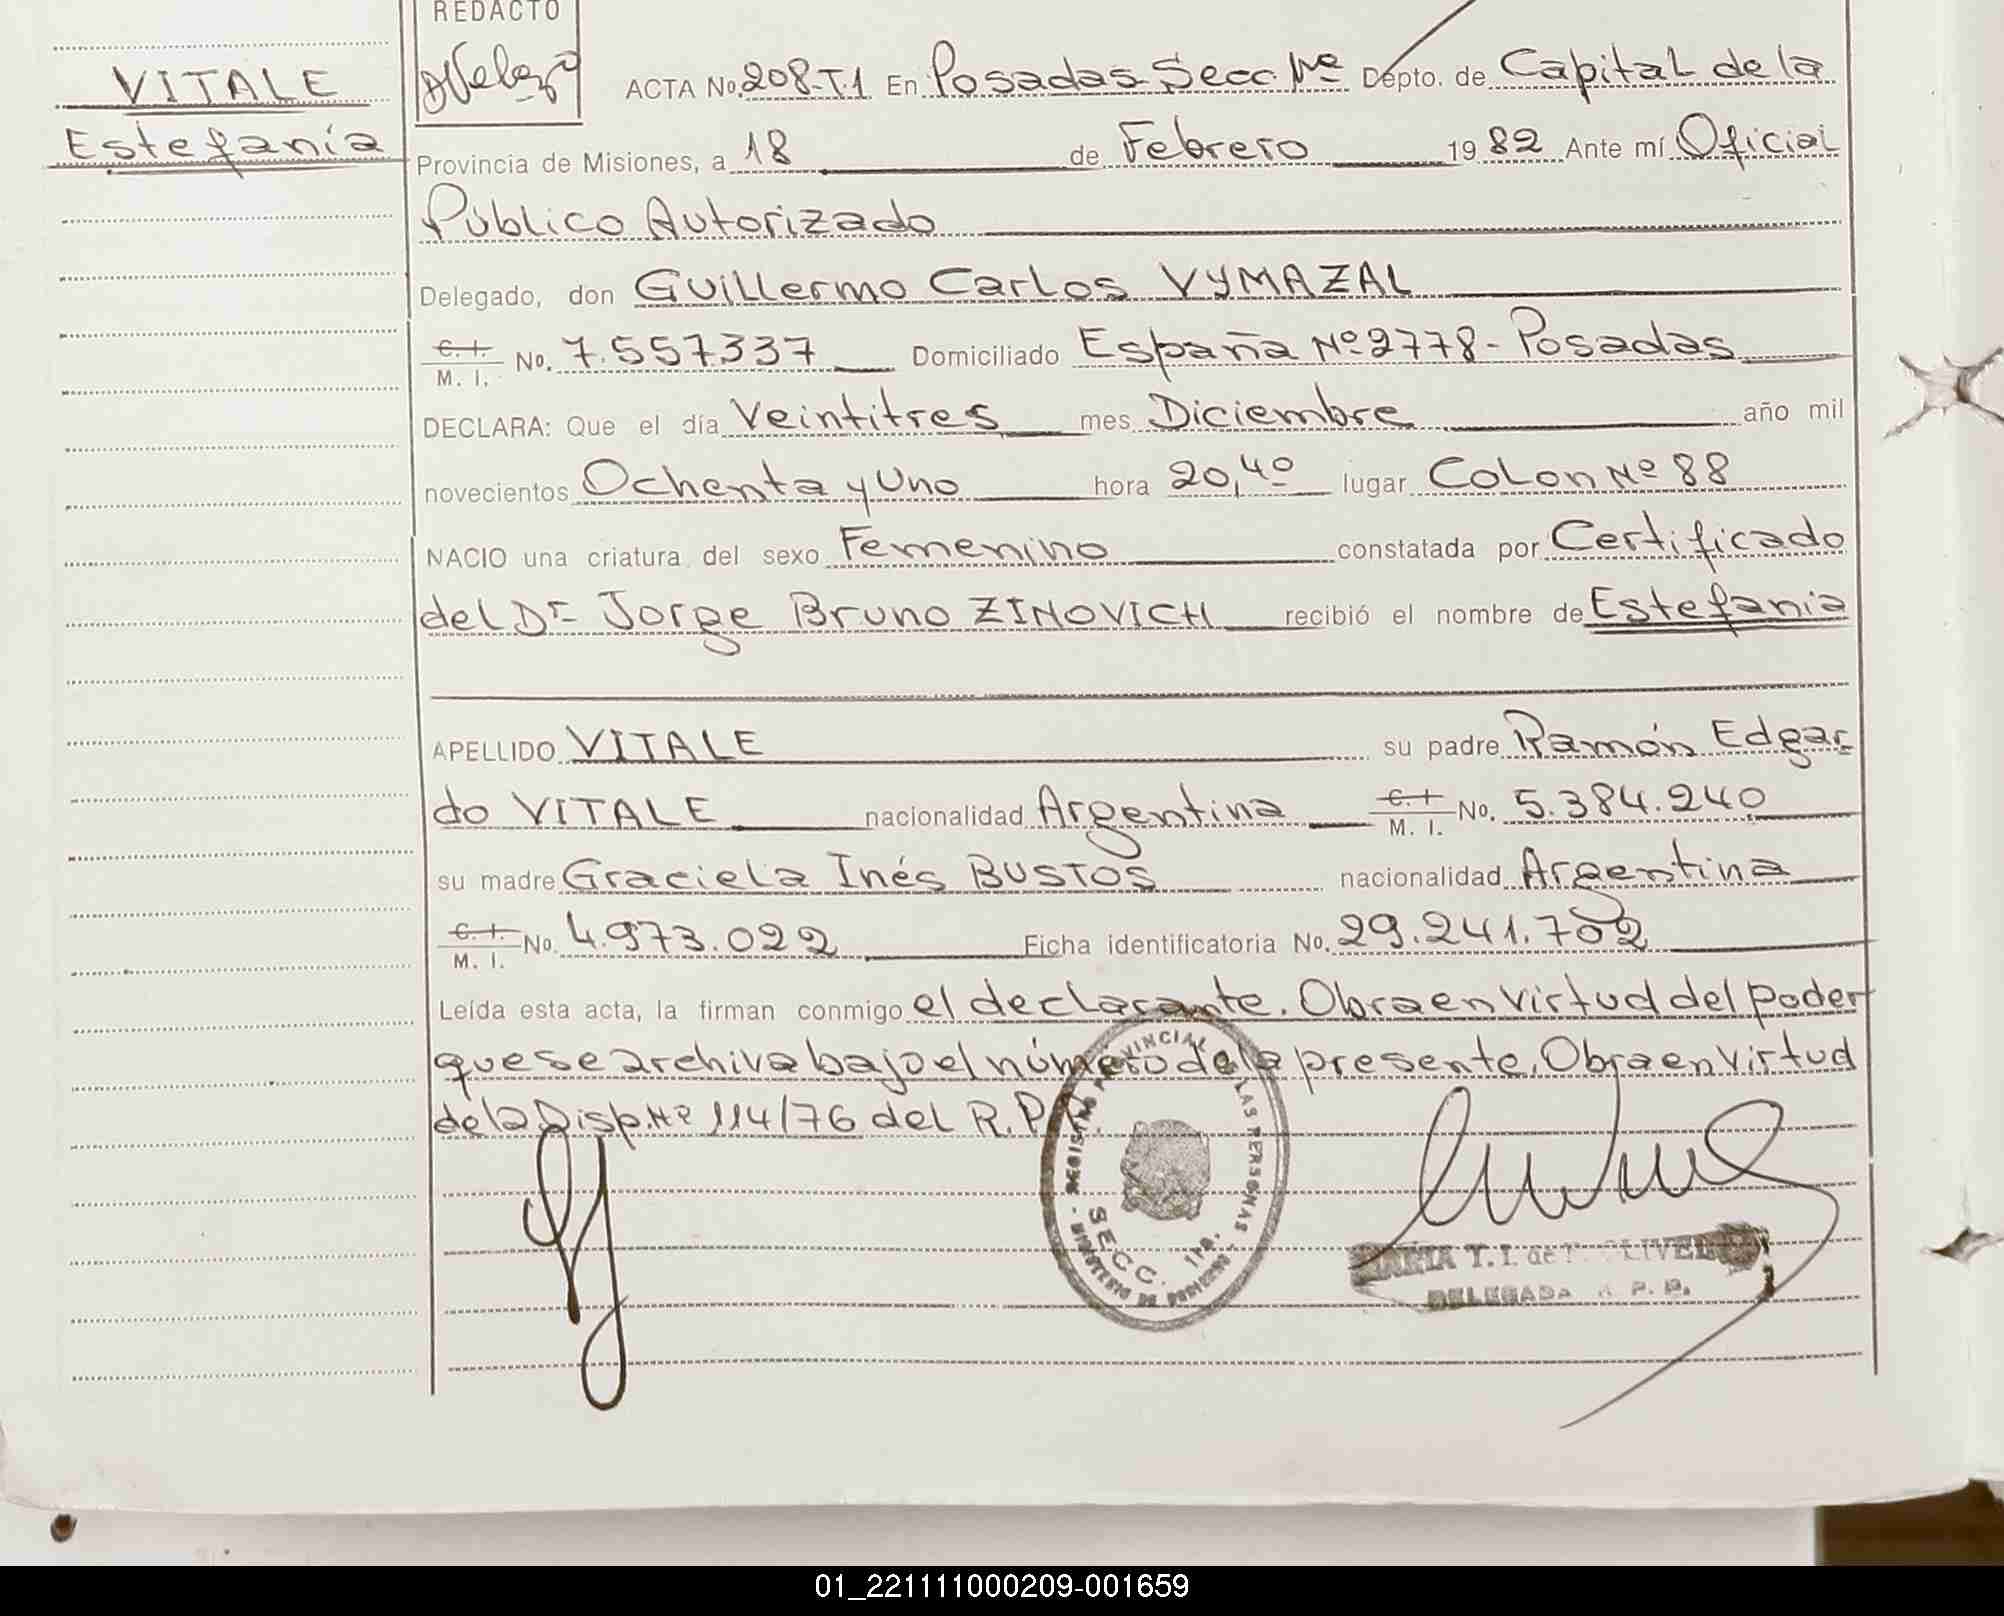 REDACTO
VITALE
Estefanía
ACTA No. 208-T.1 En Posadas-Secc. 1ra Depto. de Capital de la
Provincia de Misiones, a 18 de Febrero 1982 Ante mí Oficial
Público Autorizado
Delegado, don Guillermo Carlos VYMAZAL
C. I. M. I. No. 7.557.337 Domiciliado España Nº 2778 - Posadas
DECLARA: Que el día Veintitres mes Diciembre año mil
novecientos Ochenta y Uno hora 20,40 lugar Colon Nº 88
NACIO una criatura del sexo Femenino constatada por Certificado
del Dr. Jorge Bruno ZINOVICH recibió el nombre de Estefania
APELLIDO VITALE su padre Ramón Edgar-
do VITALE nacionalidad Argentina C. I. M. I. No. 5.384.240
su madre Graciela Inés BUSTOS nacionalidad Argentina
C. I. M. I. No. 4.973.022 Ficha identificatoria No. 29.241.702
Leída esta acta, la firman conmigo el declarante. Obra en virtud del poder
que se archiva bajo el número de la presente. Obra en virtud
de la Disp. Nº 114/76 del R.P.
MINISTERIO DE GOBIERNO - REGISTRO PROVINCIAL DE LAS PERSONAS -
SECC. 1ra.
MARIA T. I. de
DELEGADA R. P. P.
01_221111000209-001659